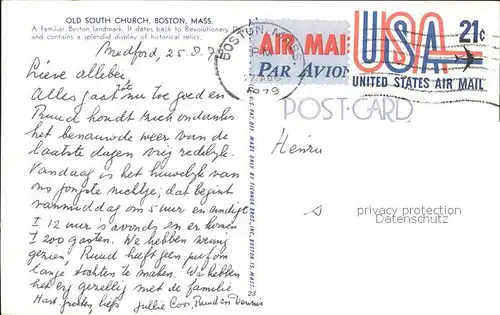 OLD SOUTH CHURCH, BOSTON, MASS.
A familiar Boston landmark. It dates back to Revolutionary
and contains a splendid display of historical relics.
Medford, 25.8.79
Lieve allebei,
Alles gaat tot nu toe goed en
Ruud houdt zich ondanks
het benauwde weer van de
laatste dagen vrij redelijk.
Vandaag is het huwelijk van
ons jongste nichtje; dat begint
vanmiddag om 5 uur en eindigt
± 12 uur 's avonds en er komen
± 200 gasten. We hebben weinig
gezien, Ruud heeft geen puf om
lange tochten te maken. We hebben
het erg gezellig met de familie
Hart. groeten, liefs Jullie Cor, Ruud en Dennis
BOSTON, MASS
1979
AIR MAIL
PAR AVION
USA 21¢
UNITED STATES AIR MAIL
POST CARD
privacy protection
Datenschutz
23